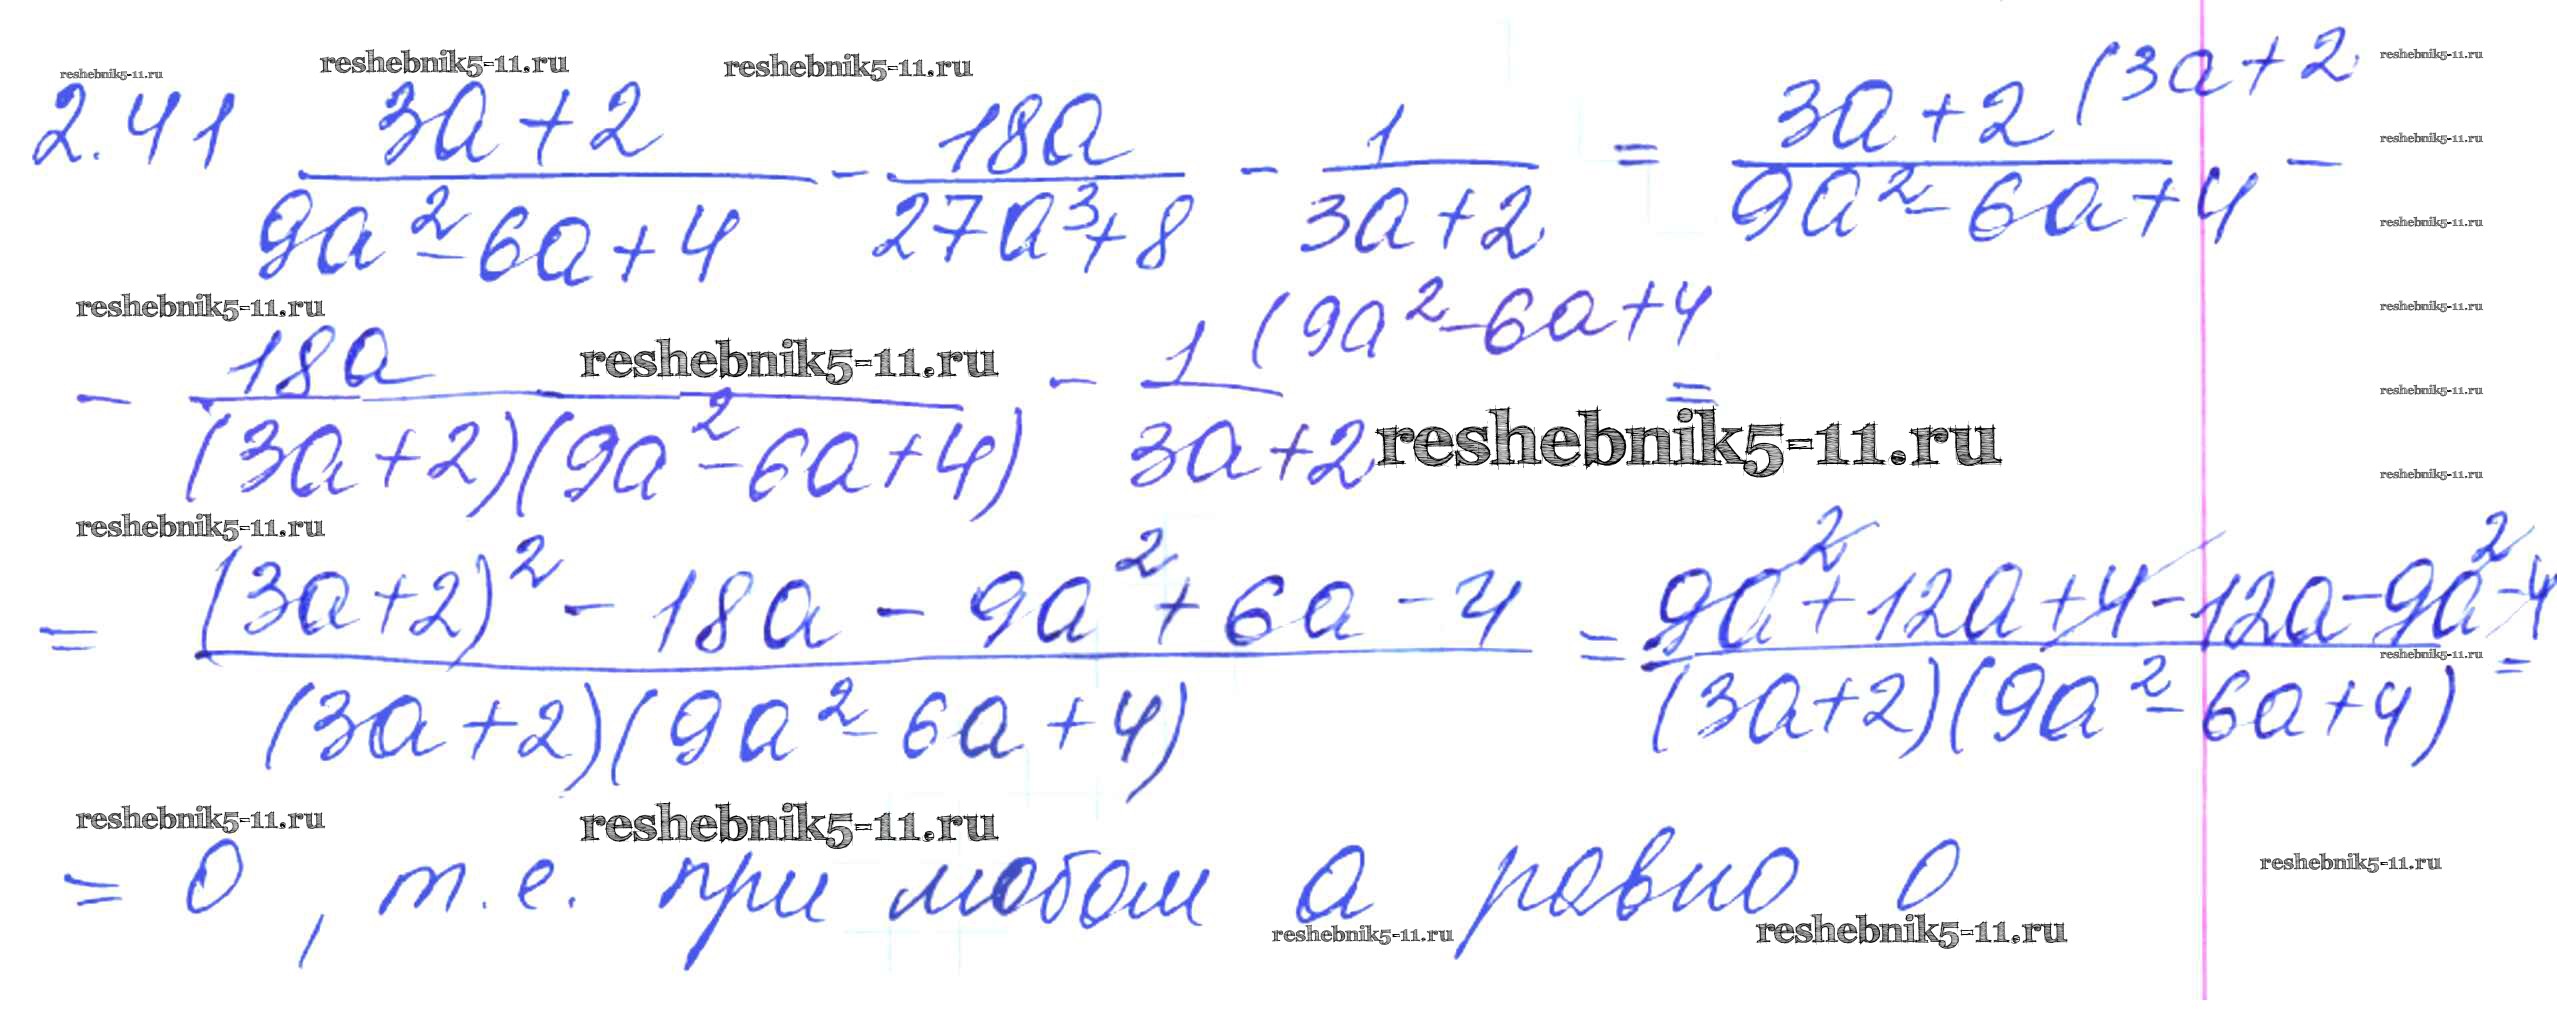 reshebnik5-11.ru reshebnik5-11.ru reshebnik5-11.ru reshebnik5-11.ru
2.41 (3a+2)/(9a²-6a+4) - 18a/(27a³+8) - 1/(3a+2) = (3a+2 (3a+2)/(9a²-6a+4) -
reshebnik5-11.ru
reshebnik5-11.ru
reshebnik5-11.ru reshebnik5-11.ru
- 18a/((3a+2)(9a²-6a+4)) - (1 (9a²-6a+4)/(3a+2) =
reshebnik5-11.ru reshebnik5-11.ru
reshebnik5-11.ru reshebnik5-11.ru
reshebnik5-11.ru
= ((3a+2)² - 18a - 9a² + 6a - 4)/((3a+2)(9a²-6a+4)) = (9a²+12a+4-12a-9a²-4)/((3a+2)(9a²-6a+4)) =
reshebnik5-11.ru
reshebnik5-11.ru reshebnik5-11.ru reshebnik5-11.ru
= 0, т.е. при любом a равно 0
reshebnik5-11.ru reshebnik5-11.ru